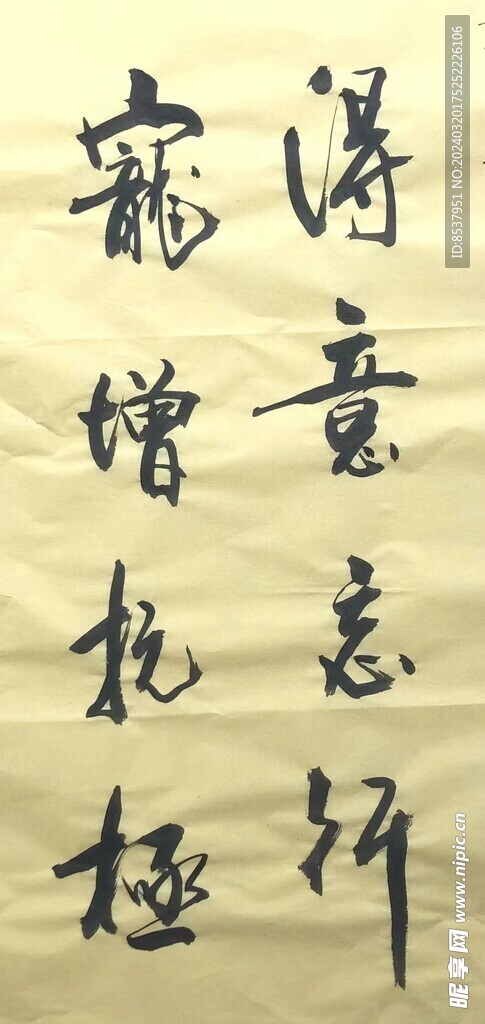 得意忘行
寵增抗極
ID:8537951 NO:20240320175252226106
昵享网 www.nipic.cn